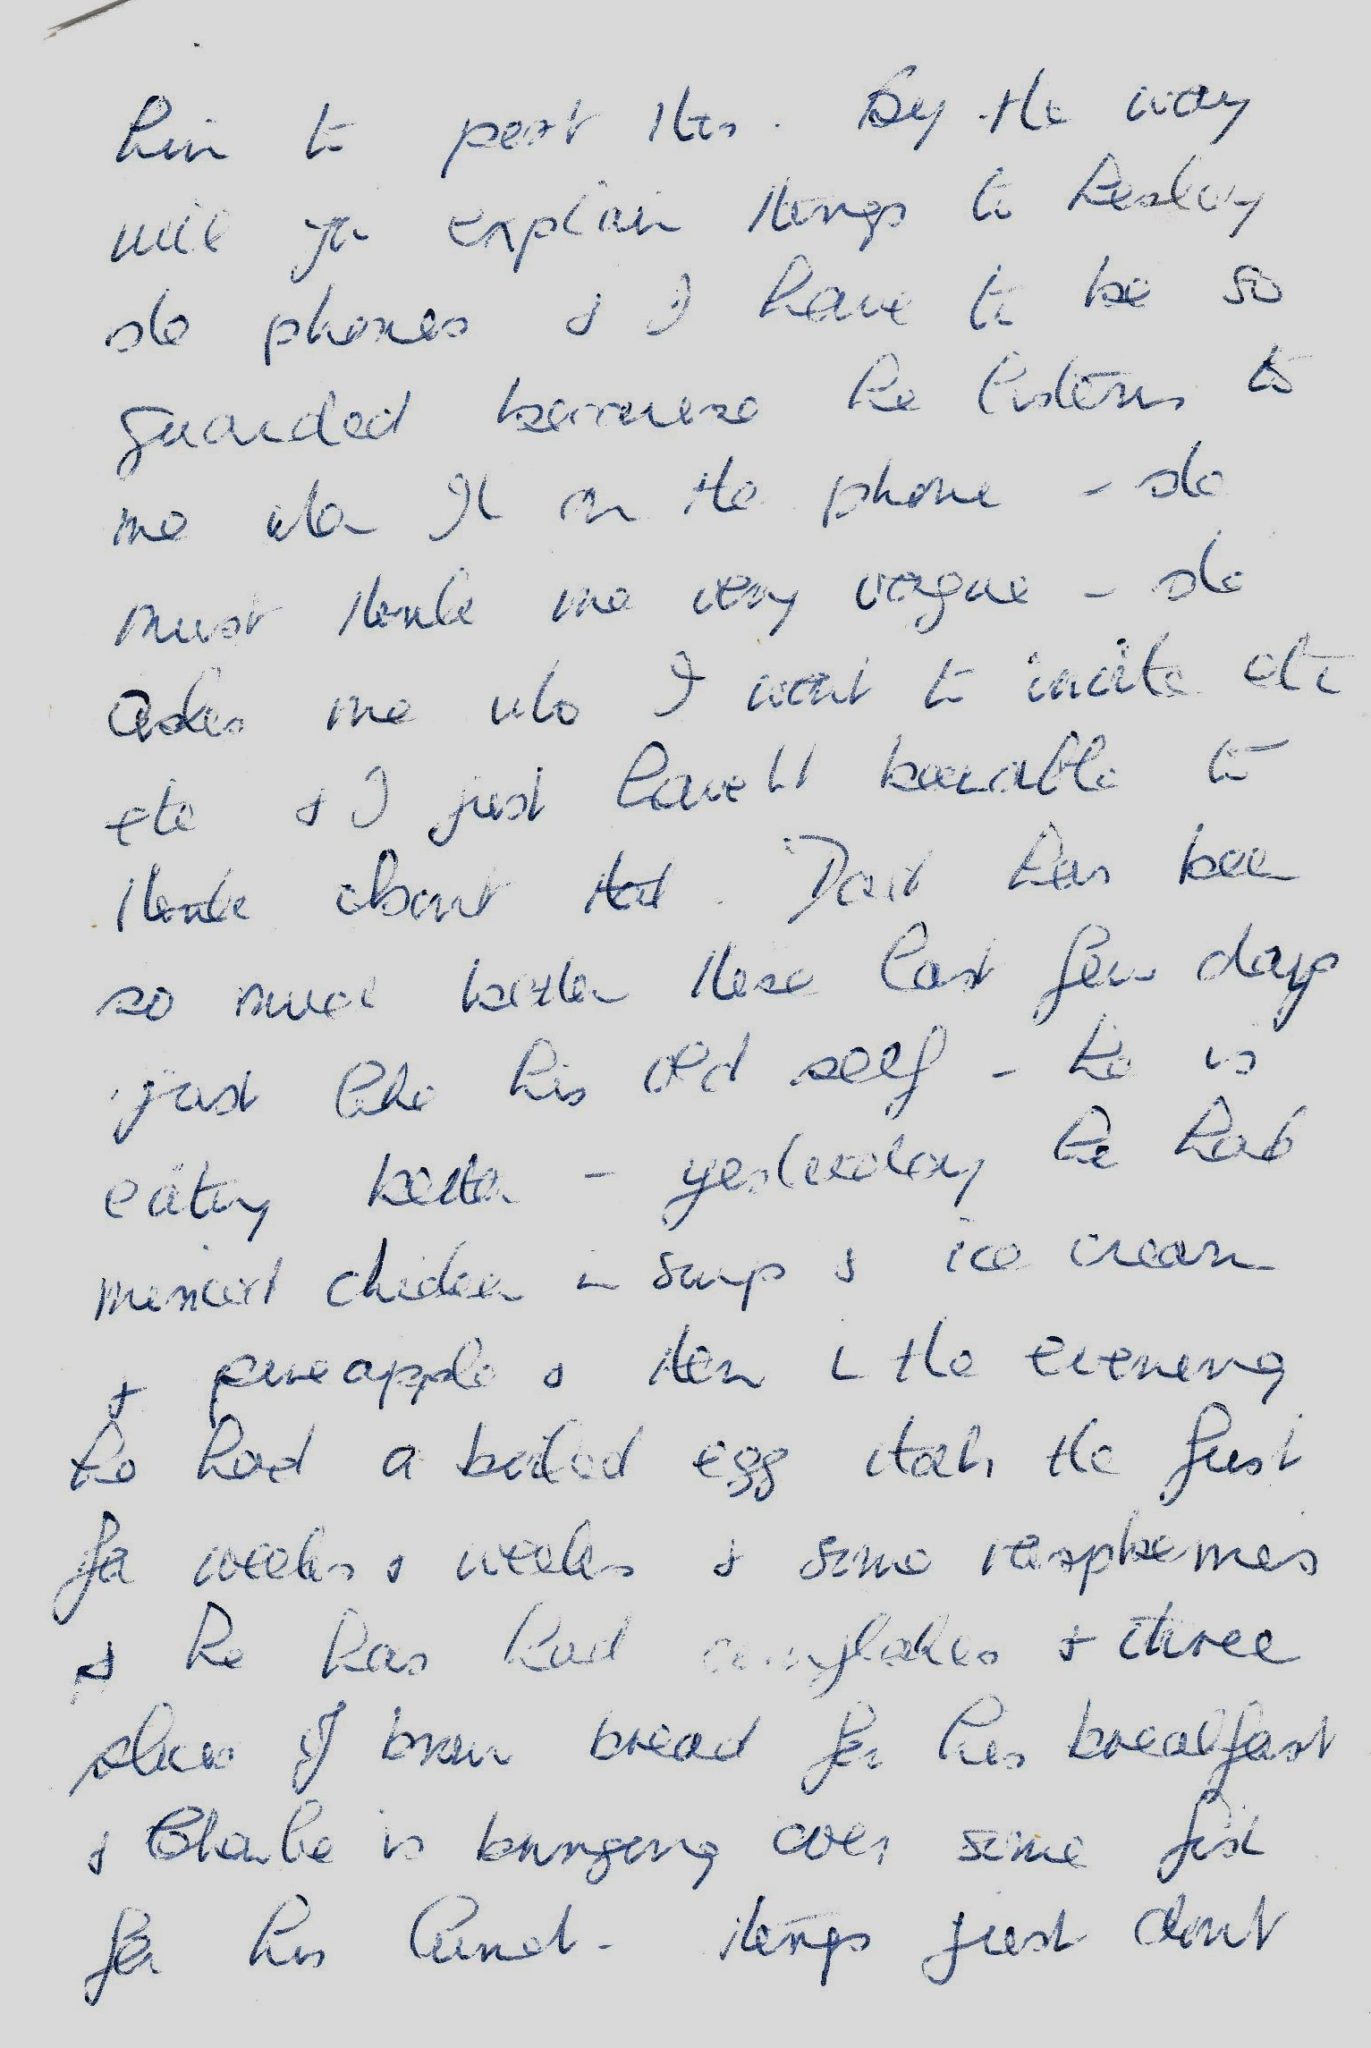 him to post this. By the way
will you explain things to Lesley
she phones & I have to be so
guarded because he listens to
me when I'm on the phone - she
must think me very vague - she
asks me who I want to invite etc
etc & I just haven't been able to
think about that. Dad has been
so much better these last few days
just like his old self - he is
eating better - yesterday he had
minced chicken in soup & ice cream
& pineapple & then in the evening
he had a boiled egg the first
for weeks & weeks & some raspberries
& he has had cornflakes & three
slices of brown bread for his breakfast
& Charlie is bringing over some fish
for his lunch - things just don't